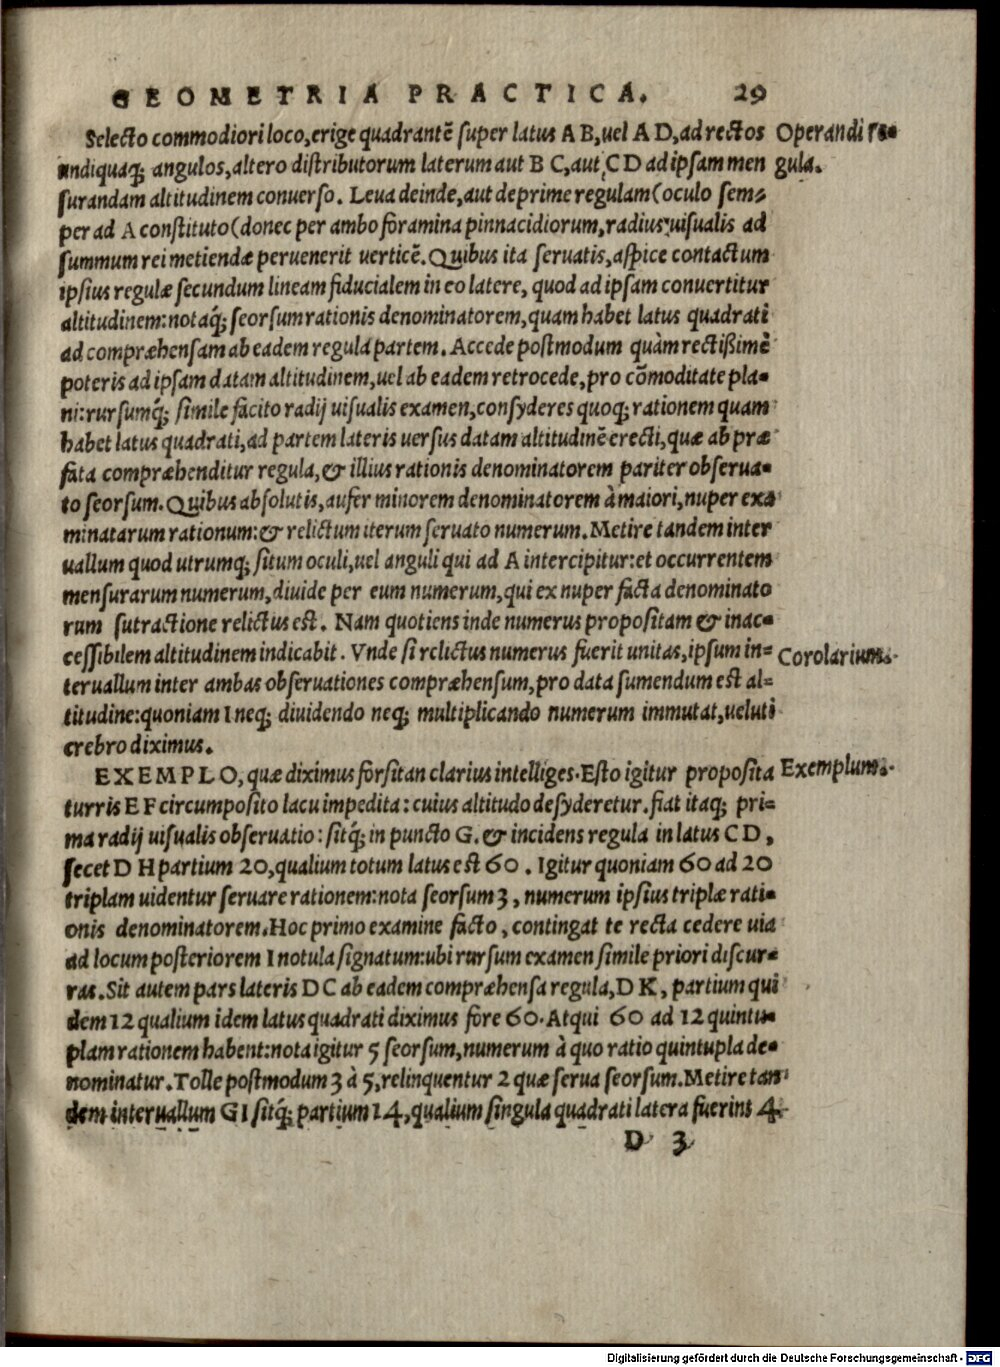 GEOMETRIA PRACTICA. 29
Selecto commodiori loco, erige quadrantē super latus A B, uel A D, ad rectos
undiquaq; angulos, altero distributorum laterum aut B C, aut C D ad ipsam men
surandam altitudinem conuerso. Leua deinde, aut deprime regulam (oculo sem=
per ad A constituto (donec per ambo foramina pinnacidiorum, radius uisualis ad
summum rei metiendæ peruenerit uerticē. Quibus ita seruatis, aspice contactum
ipsius regulæ secundum lineam fiducialem in eo latere, quod ad ipsam conuertitur
altitudinem: notaq́; seorsum rationis denominatorem, quam habet latus quadrati
ad compræhensam ab eadem regula partem. Accede postmodum quàm rectißimè
poteris ad ipsam datam altitudinem, uel ab eadem retrocede, pro cōmoditate pla=
ni: rursumq́; simile facito radij uisualis examen, consyderes quoq; rationem quam
habet latus quadrati, ad partem lateris uersus datam altitudinē erecti, quæ ab præ
fata compræhenditur regula, & illius rationis denominatorem pariter obserua=
to seorsum. Quibus absolutis, aufer minorem denominatorem à maiori, nuper exa
minatarum rationum: & relictum iterum seruato numerum. Metire tandem inter
uallum quod utrumq; situm oculi, uel anguli qui ad A intercipitur: et occurrentem
mensurarum numerum, diuide per eum numerum, qui ex nuper facta denominato
rum sutractione relictus est. Nam quotiens inde numerus propositam & inac=
cessibilem altitudinem indicabit. Vnde si relictus numerus fuerit unitas, ipsum in=
teruallum inter ambas obseruationes compræhensum, pro data sumendum est al=
titudine: quoniam 1 neq; diuidendo neq; multiplicando numerum immutat, ueluti
crebro diximus.
EXEMPLO, quæ diximus forsitan clarius intelliges. Esto igitur proposita
turris E F circumposito lacu impedita: cuius altitudo desyderetur. fiat itaq; pri=
ma radij uisualis obseruatio: sitq́; in puncto G. & incidens regula in latus C D,
secet D H partium 20, qualium totum latus est 60. Igitur quoniam 60 ad 20
triplam uidentur seruare rationem: nota seorsum 3, numerum ipsius triplæ rati=
onis denominatorem. Hoc primo examine facto, contingat te recta cedere uia
ad locum posteriorem I notula signatum: ubi rursum examen simile priori discur=
ras. Sit autem pars lateris D C ab eadem compræhensa regula, D K, partium qui
dem 12 qualium idem latus quadrati diximus fore 60. Atqui 60 ad 12 quintu=
plam rationem habent: nota igitur 5 seorsum, numerum à quo ratio quintupla de=
nominatur. Tolle postmodum 3 à 5, relinquentur 2 quæ serua seorsum. Metire tan
dem interuallum G I sitq́; partium 14, qualium singula quadrati latera fuerint 4.
D 3
Operandi re=
gula.
Corolarium.
Exemplum.
Digitalisierung gefördert durch die Deutsche Forschungsgemeinschaft - DFG